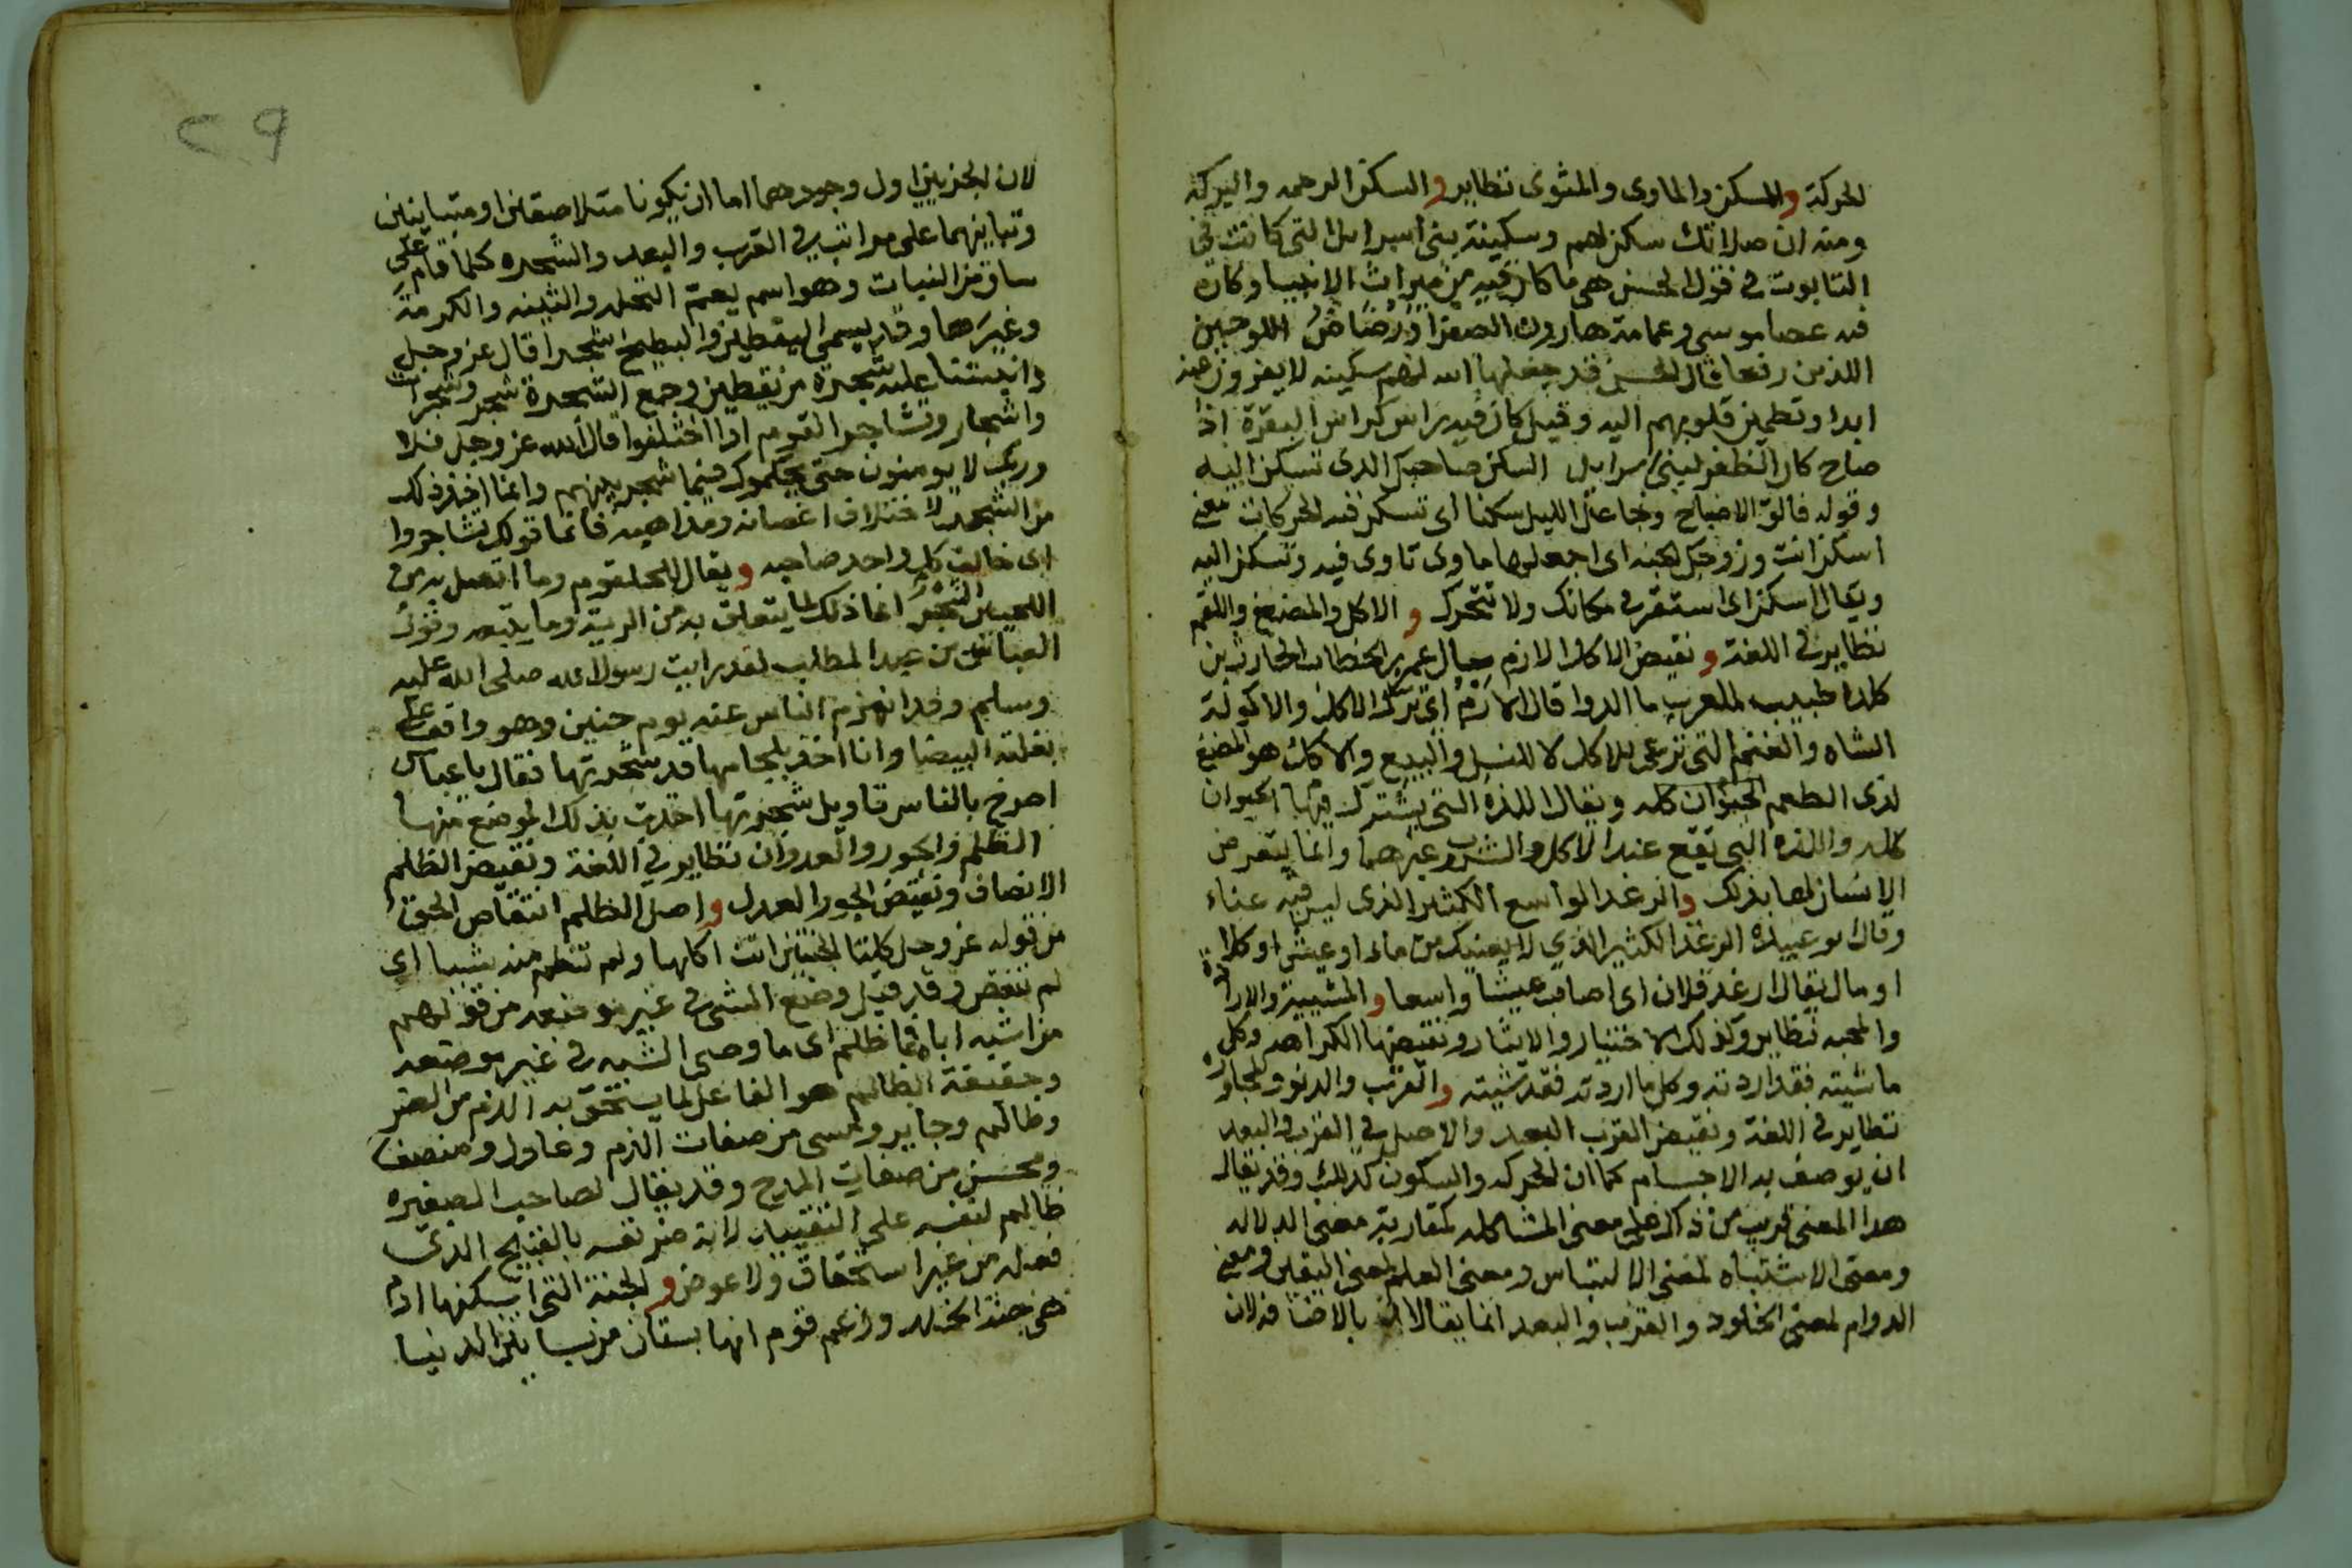 الحركة والمسكن والماوى والمثوى نظاير والسكن الرحمه والبركه
ومنه ان صلاتك سكن لهم وسكينة بنى اسرايل التى كانت في
التابوت في قول الحسن هى ما كان فيه من ميراث الانبيا وكان
فيه عصا موسى وعمامة هارون الصفرا ورضاض اللوحين
اللذين رفعا قال الحسن قد جعلها الله لهم سكينه لا يفرون عنه
ابدا وتطمين قلوبهم اليه وقيل كان فيه راس كراس البقرة اذا
صاح كان الظفر لبنى اسرايل السكن صاحبك الذى تسكن اليه
وقوله فالق الاصباح وجاعل الليل سكنا اى تسكن فيه الحركات معنى
اسكن انت وزوجك الجنه اى اجعلها ماوى تاوى فيه وتسكن اليه
ويقال اسكن اى استقر في مكانك ولا تتحرك و الاكل والمضغ واللقم
نظاير في اللغة و نقيض الاكل الازم سال عمر بن الخطاب الحارث بن
كلده طبيب العرب ما الدوا قال الازم اى ترك الاكل والاكولة
الشاه والغنم التى ترعى للاكل لا للنسل والبيع والاكل هو المضغ
لذى الطعم الحيوان كله ويقال اللذه التى يشترك فيها الحيوان
كله واللذه التى تقع عند الاكل والشرب وغيرهما وانما يتعرض
الانسان لها بذلك والرغد الواسع الكثير الذى ليس فيه عناء
وقال ابو عبيده الرغد الكثير الذي لا يعنيك من ماء او عيش او كلا
او مال يقال ارغد فلان اى اصاب عيشا واسعا و المشيية والارادة
والمحبه نظاير وكذلك الاختيار والايثار ونقيضها الكراهه وكل
ما شيته فقد اردته وكل ما اردته فقد شيته والقرب والدنو والمجاورة
نظاير في اللغة ونقيض القرب البعد والاصل في القرب والبعد
ان يوصف به الاجسام كما ان الحركه والسكون كذلك وقد يقال
هذا المعنى قريب من ذاك على معنى المشاكله كمقاربة معنى الدلاله
ومعنى الاشتباه لمعنى الالتباس ومعنى العلم لمعنى اليقين ومعنى
الدوام لمعنى الخلود والقرب والبعد انما يقالان بالاضافه لان
٢٩
لان الجزيين اول وجودهما اما ان يكونا متلاصقين او متباينين
وتباينهما على مراتب في القرب والبعد والشجره كلما قام على
ساق من النبات وهو اسم يعم النخله والتينه والكرمة
وغيرها وقد يسمى اليقطين والبطيخ شجرا قال عز وجل
وانبتنا عليه شجرة من يقطين وجمع الشجرة شجر وشجرات
واشجار وتشاجر القوم اذا اختلفوا قال الله عز وجل فلا
وربك لا يومنون حتى يحكموك فيما شجر بينهم وانما اخذ ذلك
من الشجر لاختلاف اغصانه ومذاهبه فانما قولك تشاجروا
اى خالف كل واحد صاحبه و يقال للحلقوم وما اتصل به من
اللحيين الشجر انما ذلك لما يتعلق به من الرية وما يتبعه وقول
العباس بن عبد المطلب لقد رايت رسول الله صلى الله عليه
وسلم وقد انهزم الناس عنه يوم حنين وهو واقف على
بغلته البيضا وانا اخذ بلجامها قد شجرتها فقال يا عباس
اصرخ بالناس تاويل شجرتها اخذت بذلك الموضع منها
الظلم والجور والعدوان نظاير في اللغة ونقيض الظلم
الانصاف ونقيض الجور العدل واصل الظلم انتقاص الحق
من قوله عز وجل كلتا الجنتين اتت اكلها ولم تظلم منه شيا اى
لم تنقص وقد قيل وضع الشى في غير موضعه من قولهم
من اشبه اباه فما ظلم اى ما وضع الشبه في غير موضعه
وحقيقة الظالم هو الفاعل لما يستحق به الذم من الضر
وظالم وجاير ومسى من صفات الذم وعادل ومنصف
ومحسن من صفات المدح وقد يقال لصاحب الصغيره
ظالم لنفسه على التقييد لانه ضر نفسه بالقبيح الذى
فعله من غير استحقاق ولا عوض و الجنة التى اسكنها ادم
هى جنة الخلد وزعم قوم انها بستان من بساتين الدنيا